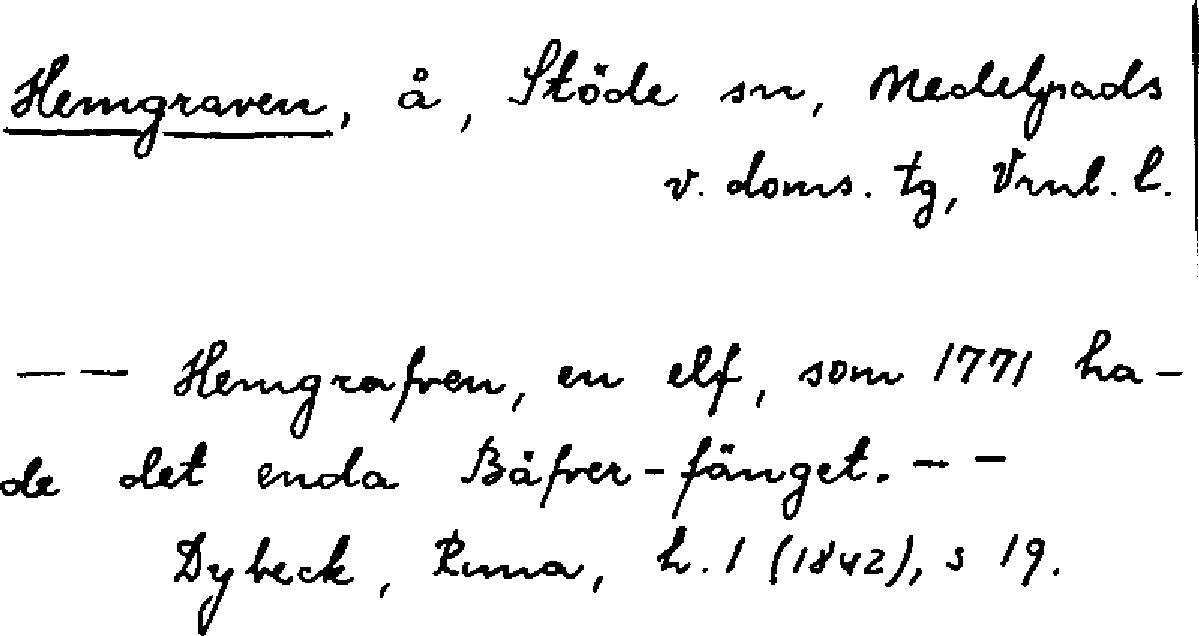 Hemgraven, å, Stöde sn, Medelpads
v. doms. tg, Vrnl. l.
-- Hemgrafven, en elf, som 1771 ha-
de det enda Bäfver-fänget. --
Dybeck, Runa, h. 1 (1842), s 19.